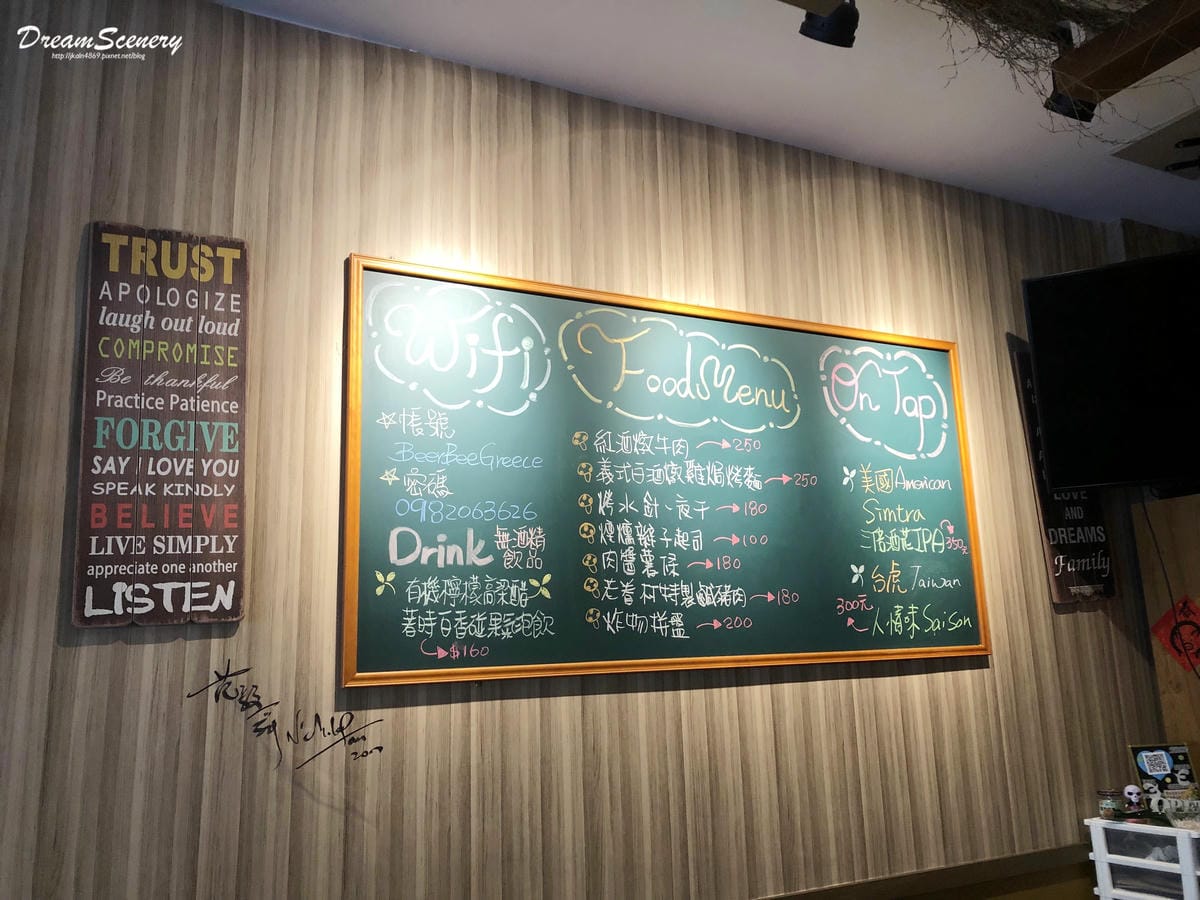 DreamScenery
http://jkaln4869.pixnet.net/blog
TRUST
APOLOGIZE
laugh out loud
COMPROMISE
Be thankful
Practice Patience
FORGIVE
SAY I LOVE YOU
SPEAK KINDLY
BELIEVE
LIVE SIMPLY
appreciate one another
LISTEN
Wifi
帳號
BeerBeeGreece
密碼
0982063626
Drink 無酒精飲品
有機檸檬高粱醋
著時百香碰果氣泡飲
$160
Food Menu
紅酒燉牛肉 250
義式白酒燉雞焗烤麵 250
烤水針、夜干 180
煙燻辮子起司 100
肉醬薯條 180
老眷村特製鹹豬肉 180
炸物拼盤 200
On Tap
美國 American
Simtra
三階酒花IPA 350元
台虎 Taiwan
300元
人情味 Saison
LOVE
AND
DREAMS
Family